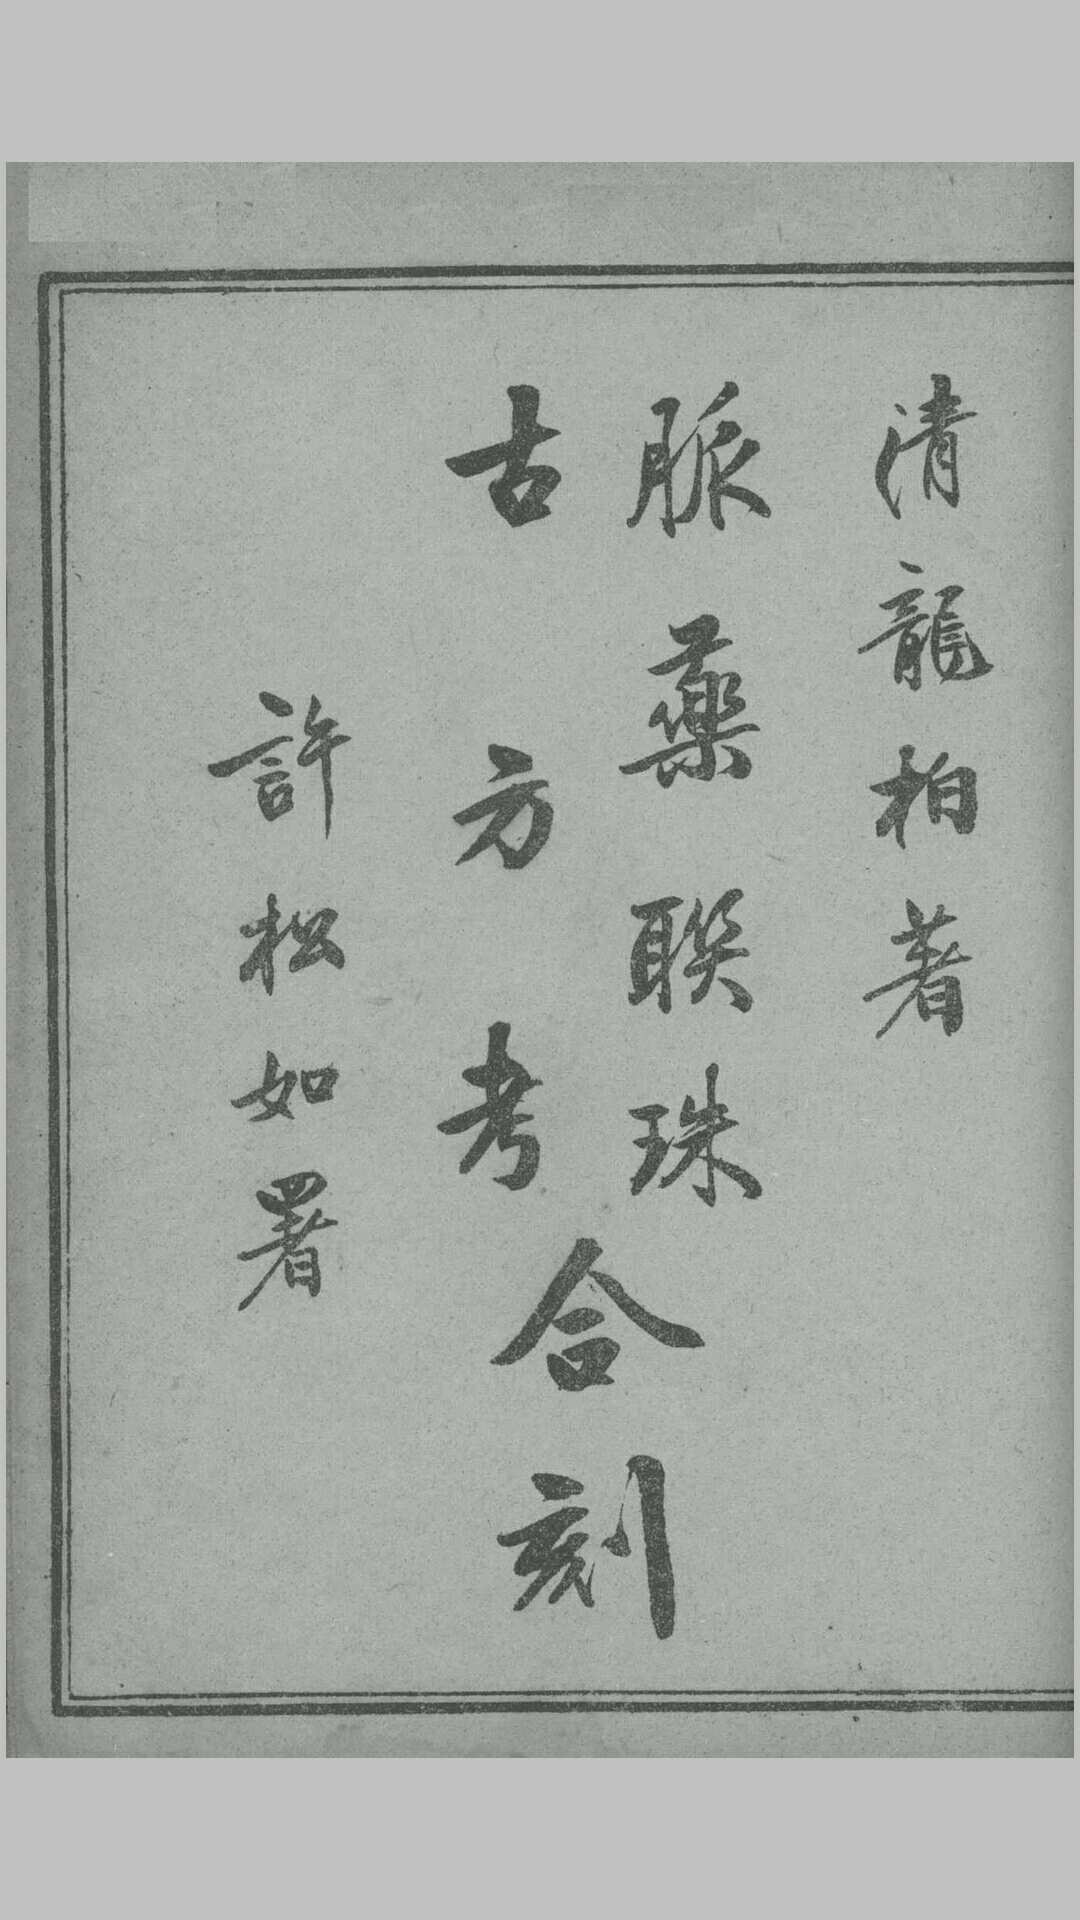 清龍柏著
脈藥聯珠
古方考
合刻
許松如署